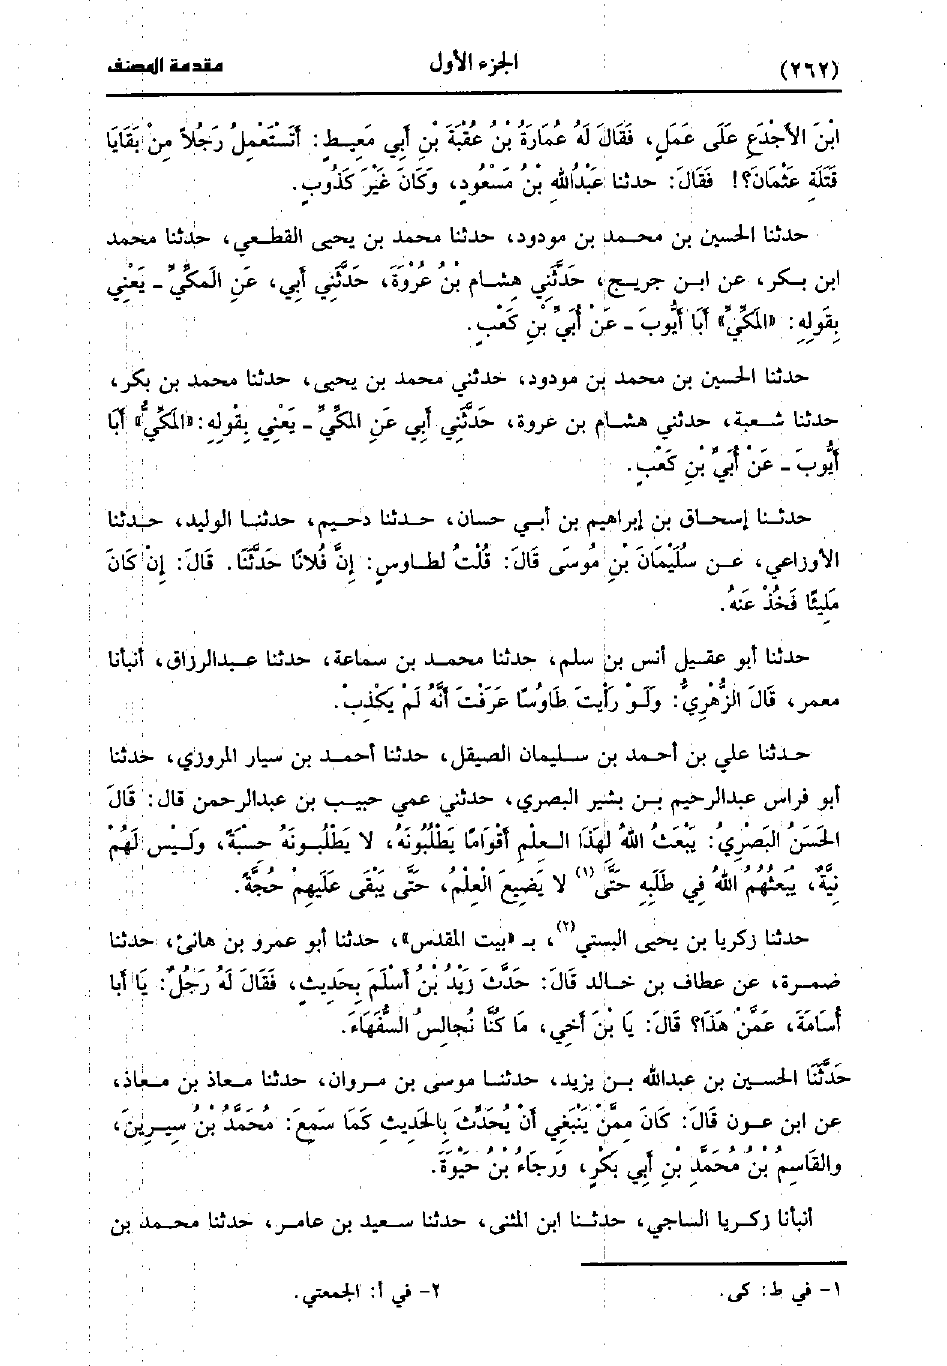 (٢٦٢) الجزء الأول مقدمة المصنف
ابْنَ الأَجْدَعِ عَلَى عَمَلٍ، فَقَالَ لَهُ عُمَارَةُ بْنُ عُقْبَةَ بْنِ أَبِي مَعِيطٍ: أَتَسْتَعْمِلُ رَجُلاً مِنْ بَقَايَا
قَتَلَةِ عَثْمَانَ؟! فَقَالَ: حدثنا عَبْدُاللهِ بْنُ مَسْعُودٍ، وَكَانَ غَيْرَ كَذُوبٍ.
حدثنا الحسين بن محمد بن مودود، حدثنا محمد بن يحيى القطعي، حدثنا محمد
ابن بكر، عن ابن جريج، حَدَّثَنِي هِشَام بْنُ عُرْوَةَ، حَدَّثَنِي أَبِي، عَنِ المَكِّيِّ - يَعْنِي
بِقَولِهِ: «المَكِّيِّ» أَبَا أَيُّوبَ - عَنْ أُبَيِّ بْنِ كَعْبٍ.
حدثنا الحسين بن محمد بن مودود، حدثني محمد بن يحيى، حدثنا محمد بن بكر،
حدثنا شعبة، حدثني هشام بن عروة، حَدَّثَنِي أَبِي عَنِ المَكِّيِّ - يَعْنِي بِقَولِهِ: «المَكِّيُّ» أَبَا
أَيُّوبَ - عَنْ أُبَيِّ بْنِ كَعْبٍ.
حدثنا إسحاق بن إبراهيم بن أبي حسان، حدثنا دحيم، حدثنا الوليد، حدثنا
الأوزاعي، عن سُلَيْمَانَ بْنِ مُوسَى قَالَ: قُلْتُ لطاوسٍ: إِنَّ فُلانًا حَدَّثَنَا. قَالَ: إِنْ كَانَ
مَلِيئًا فَخُذْ عَنهُ.
حدثنا أبو عقيل أنس بن سلم، حدثنا محمد بن سماعة، حدثنا عبدالرزاق، أنبأنا
معمر، قَالَ الزُّهْرِيُّ: وَلَوْ رَأَيتَ طَاوُسًا عَرَفْتَ أَنَّهُ لَمْ يَكْذِبْ.
حدثنا علي بن أحمد بن سليمان الصيقل، حدثنا أحمد بن سيار المروزي، حدثنا
أبو فراس عبدالرحيم بن بشير البصري، حدثني عمي حبيب بن عبدالرحمن قال: قَالَ
الحَسَنُ البَصْرِيُّ: يَبْعَثُ اللهُ لِهَذَا العِلْمِ أَقْوَامًا يَطْلُبُونَهُ، لا يَطْلُبُونَهُ حِسْبَةً، وَلَيْسَ لَهُمْ
نِيَّةٌ، يَبْعَثُهُمُ اللهُ فِي طَلَبِهِ حَتَّى(١) لا يَضِيعَ الْعِلْمُ، حَتَّى يَبْقَى عَلَيهِمْ حُجَّةٌ.
حدثنا زكريا بن يحيى البستي(٢)، بـ «بيت المقدس»، حدثنا أبو عمرو بن هانئ، حدثنا
ضمرة، عن عطاف بن خالد قَالَ: حَدَّثَ زَيْدُ بْنُ أَسْلَمَ بِحَدِيثٍ، فَقَالَ لَهُ رَجُلٌ: يَا أَبا
أُسَامَةَ، عَمَّنْ هَذَا؟ قَالَ: يَا بْنَ أَخِي، مَا كُنَّا نُجَالِسُ السُّفَهَاءَ.
حَدَّثَنَا الحسين بن عبدالله بن يزيد، حدثنا موسى بن مروان، حدثنا معاذ بن معاذ،
عن ابن عون قَالَ: كَانَ مِمَّنْ يَنْبَغِي أَنْ يُحَدِّثَ بِالحَدِيثِ كَمَا سَمِعَ: مُحَمَّدُ بْنُ سِيرِينَ،
والقَاسِمُ بْنُ مُحَمَّدِ بْنِ أَبِي بَكْرٍ، وَرَجَاءُ بْنُ حَيْوَةَ.
أنبأنا زكريا الساجي، حدثنا ابن المثنى، حدثنا سعيد بن عامر، حدثنا محمد بن
١- في ط: كى. ٢- في أ: الجمعتي.